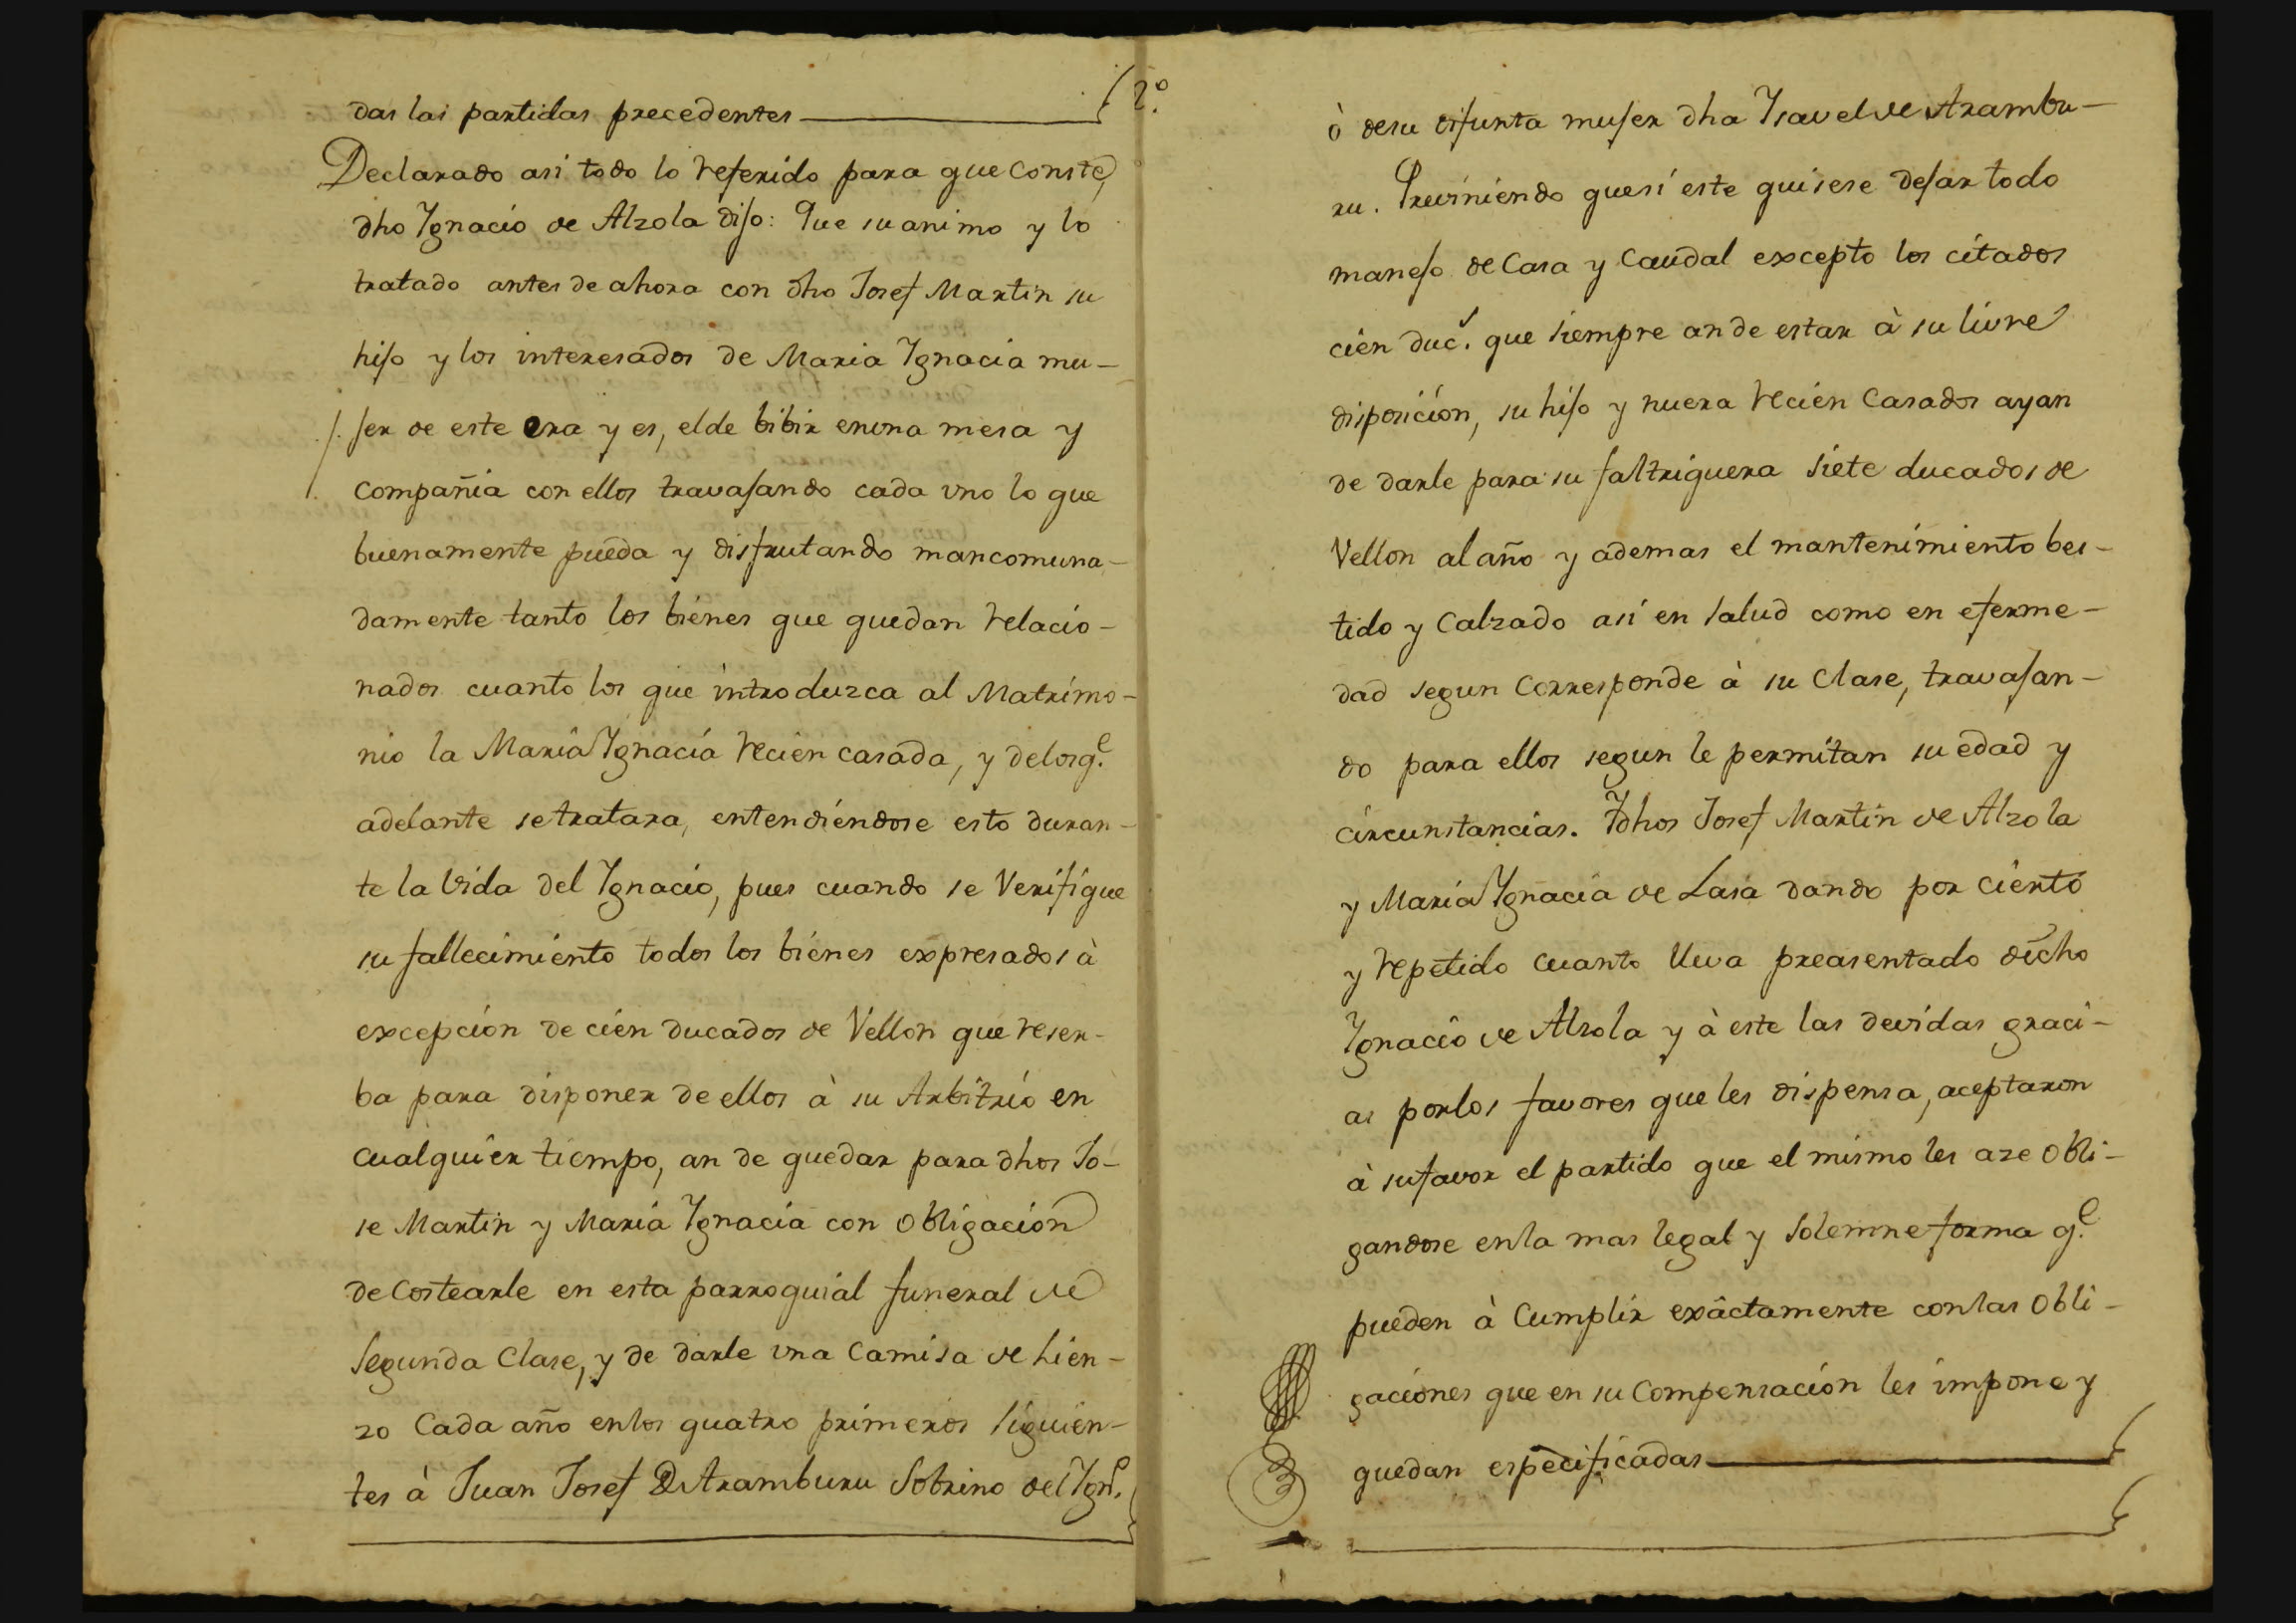 das las partidas precedentes
2º.
Declarado asi todo lo referido para que conste,
dho Ygnacio de Alzola dijo: Que su animo y lo
tratado antes de ahora con dho Josef Martin su
hijo y los interesados de Maria Ygnacia mu-
jer de este era y es, el de bibir en una mesa y
compañia con ellos travajando cada uno lo que
buenamente pueda y disfrutando mancomuna-
damente tanto los bienes que quedan relacio-
nados cuanto los que introduzca al Matrimo-
nio la Maria Ygnacia recien casada, y de los q.e
adelante se tratara, entendiéndose esto duran-
te la Vida del Ygnacio, pues cuando se Verifique
su fallecimiento todos los bienes expresados à
excepcion de cien ducados de Vellon que reser-
ba para disponer de ellos à su Arbitrio en
cualquier tiempo, an de quedar para dhos Jo-
se Martin y Maria Ygnacia con obligacion
de costearle en esta parroquial funeral de
Segunda Clase, y de darle una Camisa de lien-
zo Cada año en los quatro primeros siguien-
tes à Juan Josef De Aramburu Sobrino del Ygn.o
ò de su difunta mujer dha Ysavel de Arambu-
ru. Previniendo que si este quisese dejar todo
manejo de Casa y Caudal excepto los citados
cien duc.s que siempre an de estar à su livre
disposicion, su hijo y nuera recien Casados ayan
de darle para su faltriguera siete ducados de
Vellon al año y ademas el mantenimiento bes-
tido y Calzado asi en salud como en eferme-
dad segun Corresponde à su Clase, travajan-
do para ellos segun le permitan su edad y
circunstancias. Y dhos Josef Martin de Alzola
y Maria Ygnacia de Lasa dando por cierto
y repetido cuanto lleva preasentado dicho
Ygnacio de Alzola y à este las devidas graci-
as por los favores que les dispensa, aceptaron
à su favor el partido que el mismo les aze obli-
gandose en la mas legal y solemne forma q.e
pueden à Cumplir exâctamente con las obli-
gaciones que en su Compensacion les impone y
quedan especificadas